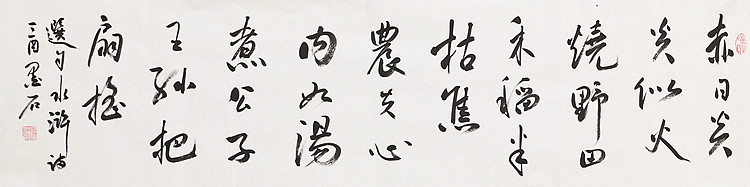 赤日炎
炎似火
燒野田
禾稻半
枯焦
農夫心
内如湯
煮公子
王孫把
扇搖
選句水滸诗
丁酉墨石